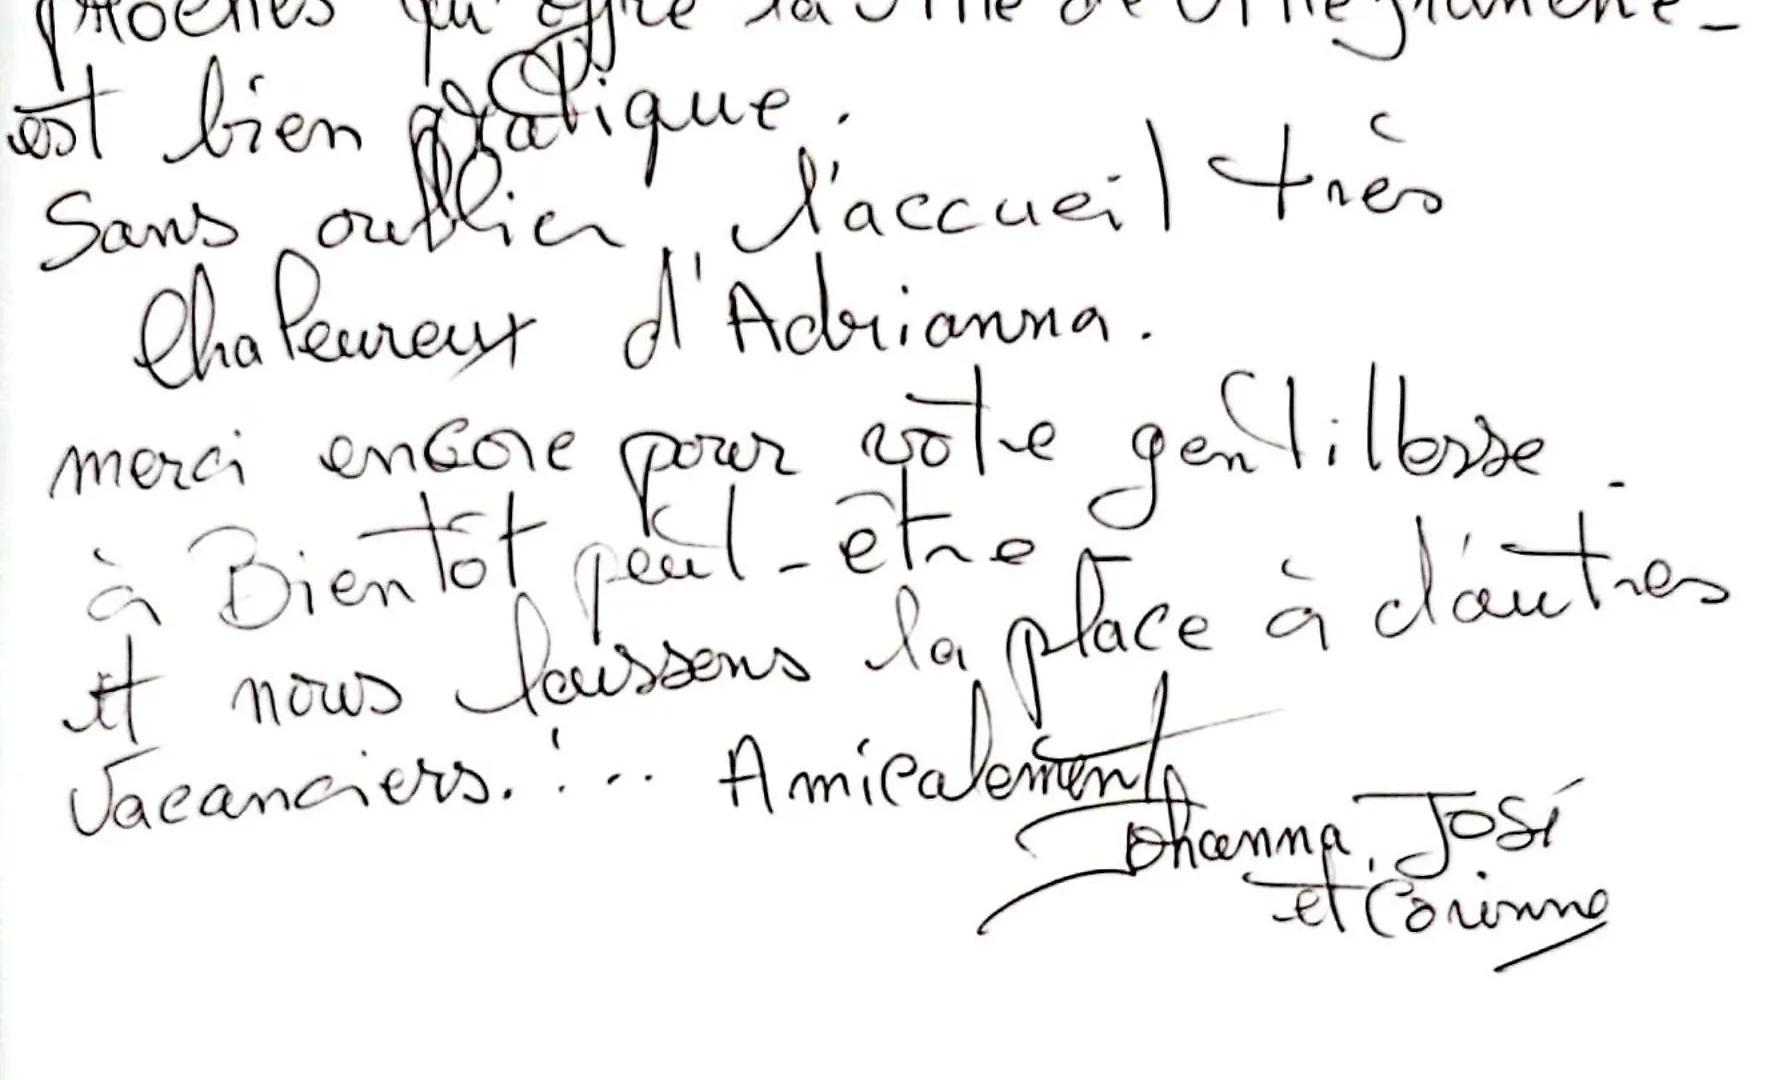 proches qu'offre la ville de Villefranche-
est bien pratique.
Sans oublier, l'accueil très
Chaleureux d'Adrianna.
merci encore pour vôtre gentillesse.
à Bientôt peut-être
et nous laissons la place à d'autres
Vacanciers.!... Amicalement
Johanna, José
et Corinne